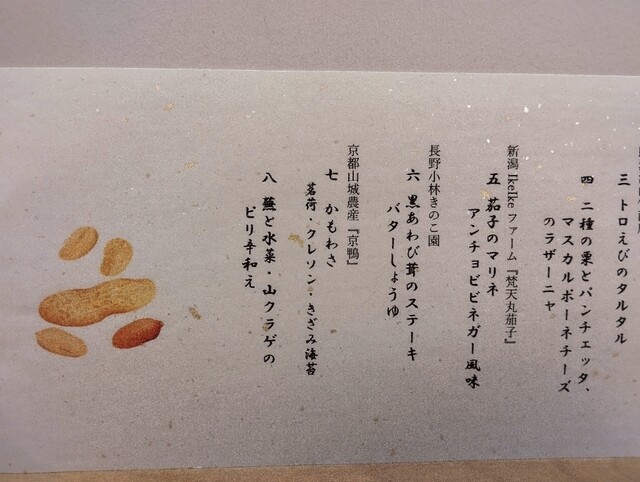 三 トロえびのタルタル
四 二種の栗とパンチェッタ、
マスカルポーネチーズ
のラザーニャ
新潟 IkeIke ファーム『梵天丸茄子』
五 茄子のマリネ
アンチョビビネガー風味
長野小林きのこ園
六 黒あわび茸のステーキ
バターしょうゆ
京都山城農産『京鴨』
七 かもわさ
茗荷・クレソン・きざみ海苔
八 蕪と水菜・山クラゲの
ピリ辛和え